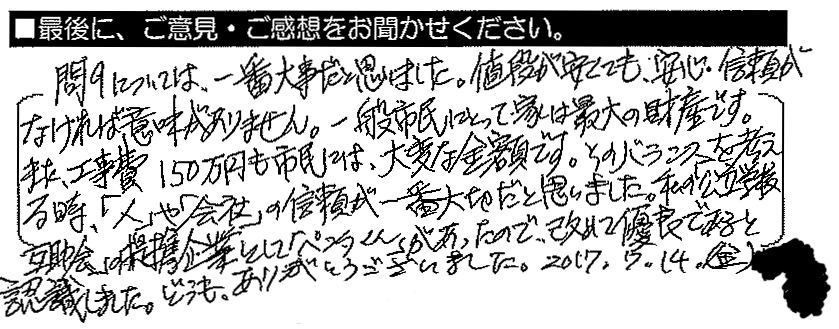 ■最後に、ご意見・ご感想をお聞かせください。
問9については、一番大事だと思いました。値段が安くても、安心・信頼が
なければ意味がありません。一般市民にとって家は最大の財産です。
また、工事費150万円も市民には、大変な金額です。そのバランスを考え
る時、「人」や「会社」の信頼が一番大切だと思いました。私の「公立学校
互助会」の提携企業として「ペンタくん」があったので、改めて優良であると
認識しました。どうも、ありがとうございました。2017.7.14.(金)